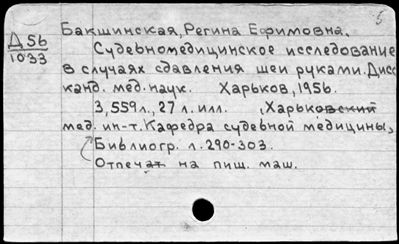 5
Бакшинская, Регина Ефимовна.
Д56
1033
Судебномедицинское исследование
в случаях сдавления шеи руками. Дисс
канд. мед. наук. Харьков, 1956.
3, 559 л., 27 л. илл. , Харьковский
мед. ин-т. Кафедра судебной медицины,
Библиогр. л. 290-303.
Отпечат на пиш. маш.